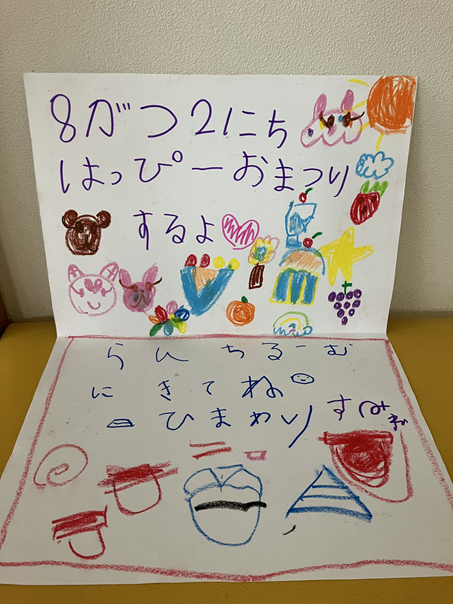 8がつ2にち
はっぴーおまつり
するよ
らんちるーむ
にきてね
ひまわり